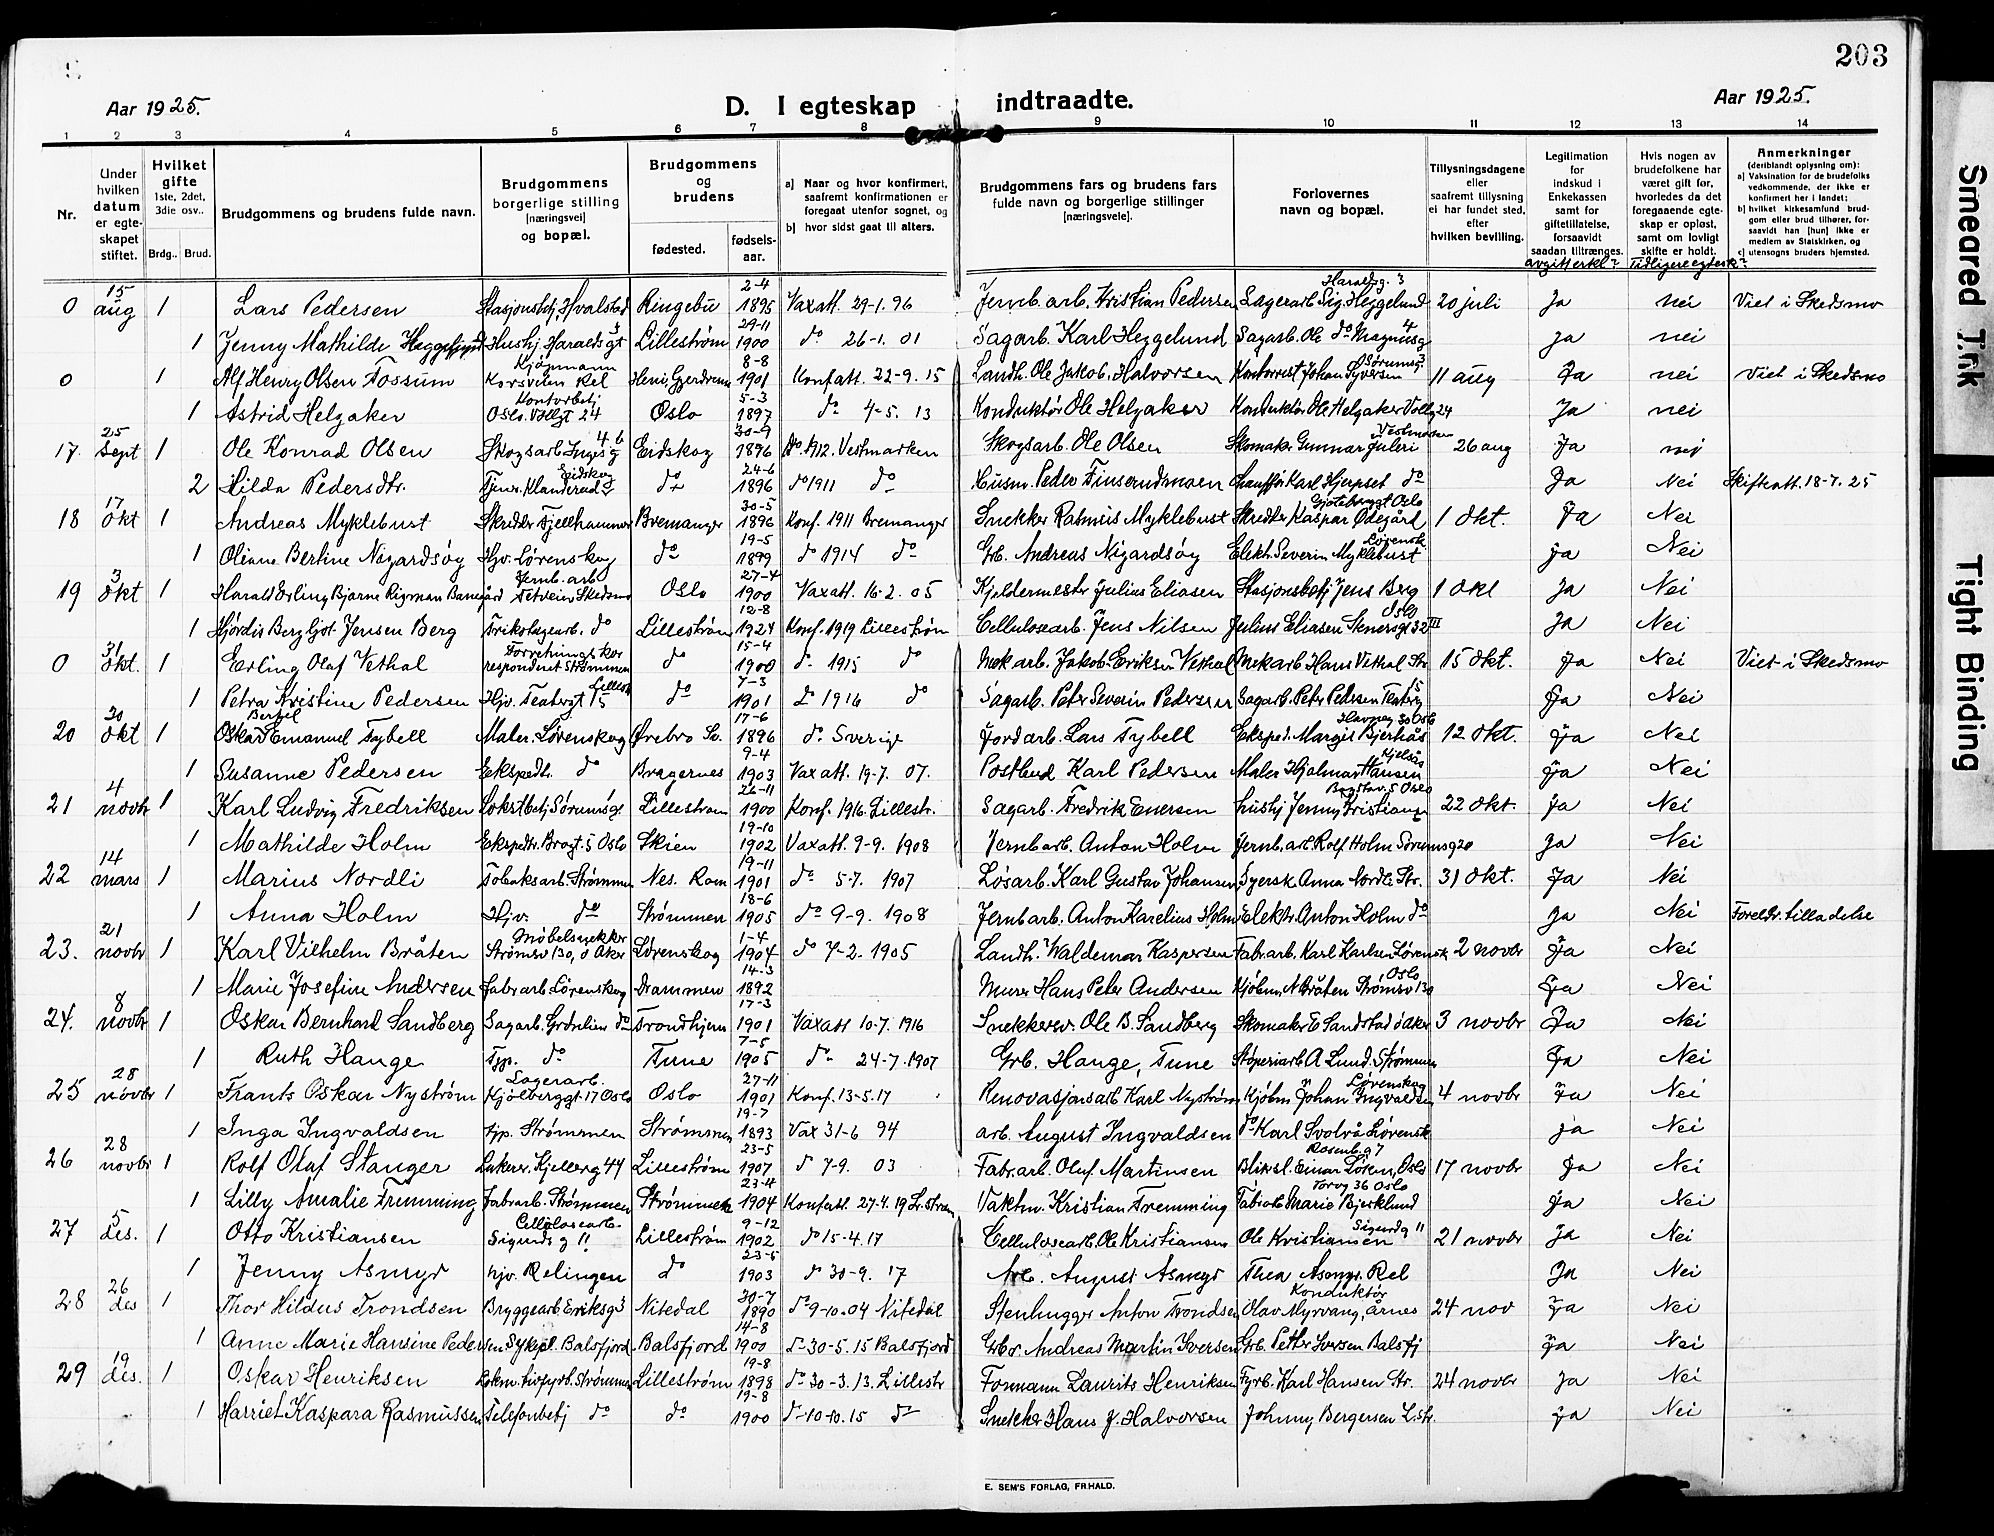 203
Aar 1925.
D. I egteskap indtraadte.
Aar 1925.
1 2 3 4 5 6 7 8 9 10 11 12 13 14
Nr.
Under hvilken datum er egte- skapet stiftet.
Hvilket gifte 1ste, 2det, 3die osv..
Brdg.. Brud.
Brudgommens og brudens fulde navn.
Brudgommens borgerlige stilling [næringsvei] og bopæl.
Brudgommens og brudens
fødested. fødsels- aar.
a] Naar og hvor konfirmert, saafremt konfirmationen er foregaat utenfor sognet, og
b] hvor sidst gaat til alters.
Brudgommens fars og brudens fars fulde navn og borgerlige stillinger [næringsveie].
Forlovernes navn og bopæl.
Tillysningsdagene eller saafremt tillysning ei har fundet sted, efter hvilken bevilling.
Legitimation for indskud i Enkekassen samt for giftetillatelse, forsaavidt saadan tiltrænges.
Hvis nogen av brudefolkene har været gift før, hvorledes da det foregaaende egte- skap er opløst, samt om lovligt skifte er holdt.
Anmerkninger (deriblandt oplysning om):
a] Vaksination for de brudefolks vedkommende, der ikke er konfirmert her i landet;
b] hvilket kirkesamfund brud- gom eller brud tilhører, for- saavidt han [hun] ikke er medlem av Statskirken, og
c] utensogns bruders hjemsted.
0 15 aug 1 Lars Pedersen Stasjonsbtj. Hvalstad Ringebu 2-4 1895 Vaxatt. 29-1. 96 Jernb.arb. Kristian Pedersen Lagerarb. Sig. Heggelund Haraldsg. 3 20 juli Ja nei Viet i Skedsmo
1 Jenny Mathilde Heggelund Hushj Haralds gt 3 Lillestrøm 29-11 1900 do 26-1. 01 Sagarb. Karl Heggelund Sagarb. Ole do Magnusg 4 ja nei
0 1 Alf Henry Olsen Fossum Kjøpmann Korsveien Rel 8-8 1901 Konfatt. 22-9. 15 Landh. Ole Jakob Halvorsen Kontorist Johan Syversen Sørumsg. 3 11 aug Ja nei Viet i Skedsmo
1 Astrid Helgaker Kontorbetj Oslo. Vollgt 24 Oslo 5-3 1897 do 4-5. 13 Konduktør Ole Helgaker Konduktør Ole Helgaker Vollg 24 Ja nei
17. 25 Sept 1 Ole Konrad Olsen Skogsarb Eidskog 30-9 1896 do 1912. Vestmarken Skogsarb. Ole Olsen Skomaker Gunnar Juleri Vestmarken 26 aug Ja nei
2 Hilda Pedersdtr. Eidskog do 24-6 1896 do 1911 do Husm. Peder Chauffør Karl Hjerpset do Ja Nei Skifteatt. 18-7. 25
18 17 Okt 1 Andreas Myklebust Skredder Fjellhammer Bremanger 30-5 1896 Konf. 1911 Bremanger Snekker Rasmus Myklebust Skredder Kaspar Ødegård Oslo 1 Okt. Ja Nei
1 Oliane Bertine Nigardsøy Hjv. Lørenskog do 19-5 1899 do 1914 do Grb. Andreas Nigardsøy Elekt. Severin Myklebust Lørensk. ja Nei
19 3 Okt 1 Harald Erling Bjarne Rigman Jernb. arb Tetvein Skedsmo Oslo 27-4 1900 Vaxatt. 16-2. 05 Kjeldermester Julius Eliasen Stasjonsbetj Jens Berg 1 Okt Ja Nei
1 Hjørdis Bergljot Jensen Berg do Lillestrøm 12-8 1924 Konf. 1919 Lillestrøm Cellulosearb. Jens Nilsen Julius Eliasen Stenersgt 32 III Oslo Ja Nei
0 31 Okt. 1 Erling Olaf Vethal Forretningskor respondent Strømmen do 15-4 1900 do 1915 do Mek arb. Jakob Eriksen Vethal Mekarb Hans Vethal Str 15 Okt. Ja Nei Viet i Skedsmo
1 Petra Kristine Pedersen Hjv. Teatergt 15 Lillestr do 7-3 1901 do 1916 do Sagarb. Peter Severin Pedersen Sagarb. Peter Pedersen Teaterg 15 Ja Nei
20 30 Okt 1 Oskar Bertel Emanuel Tybell Maler. Lørenskog Ørebro Sv. 17-6 1896 do Sverige Jordarb. Lars Tybell Eksped. Margit Bjerkås 12 Okt. Ja Nei
1 Susanne Pedersen Ekspedtr. do Bragernes 9-4 1903 Vaxatt. 19-7. 07. Postbud Karl Pedersen Maler Hjalmar Hansen Kjelsås Ja Nei
21 4 novbr 1 Karl Ludvig Fredriksen Lokstbtj Sørumsg. Lillestrøm 26-11 1900 Konf. 1916. Lillestr. Sagarb. Fredrik Enersen hushj Jenny Kristiansen Oslo 22 Okt. Ja Nei
1 Mathilde Holm Ekspedtr. Brogt. 5 Oslo Skien 19-10 1902 Vaxatt. 9-9. 1908 Jernb arb. Anton Holm Jernb. arb Rolf Holm Sørumsg 20 Ja Nei
22 14 mars 1 Marius Nordli Tobaksarb. Strømmen Nes. Rom 19-11 1901 do 5-7. 1907 Løsarb. Karl Gustav Johansen Syersk. Anna Nordli Str. 31 Okt. Ja Nei
1 Anna Holm Hjv. do Strømmen 18-6 1905 do 9-9. 1908 Jernb arb. Anton Karelius Holm Elektr. Anton Holm do Ja Nei Foreldr. tilladelse
23. 21 novbr 1 Karl Vilhelm Bråten Møbelsnekker Strømsv 130, Ø Aker Lørenskog 1-4 1904 do 7-2. 1905 Landh. Waldemar Kaspersen Fabr.arb. Karl Karlsen Lørensk 2 novbr Ja Nei
1 Marie Josefine Andersen Fabr arb. Lørenskog Drammen 14-3 1892 Murer Hans Peter Andersen Kjøbm. N Bråten Strømsv 130 Oslo Ja Nei
24. 8 novbr 1 Oskar Bernhard Sandberg Sagarb. do Trondhjem 17-3 1901 Vaxatt 10-7. 1916 Snekkersv. Ole B. Sandberg Skomaker E Sandstad Ø Aker 3 novbr Ja Nei
1 Ruth Hange Tjp. do Tune 7-5 1905 do 24-7. 1907 Grb. Hange, Tune Støperiarb A Lund. Strømmen Ja Nei
25 28 novbr 1 Frants Oskar Nystrøm Lagerarb. Kjølberggt 17 Oslo Oslo 27-11 1901 Konf. 13-5. 17 Renovasjonsarb Karl Nystrøm Kjøbm Johan Ingvaldsen Lørenskog 4 novbr Ja Nei
1 Inga Ingvaldsen tjp. Strømmen Strømmen 19-7 1893 Vax 31-6 94 arb. August Ingvaldsen do Karl Svolvå Lørensk Ja Nei
26 28 novbr 1 Rolf Olaf Stanger Kjellerg 44 Lillestrøm 23-5 1907 do 7-9. 03 Fabr.arb. Oluf Martinsen Blikksl. Einar Løren, Oslo Rosenb. g 7 17 novbr Ja Nei
1 Lilly Amalie Fremming Fabr arb. Strømmen Strømmen 23-4 1904 Konfatt. 27-4. 19 L.strøm Vaktm. Kristian Fremming Marie Bjerklund Torvg 36 Oslo Ja Nei
27 5 des. 1 Otto Kristiansen Cellulosearb. Sigurds g 11 Lillestrøm 9-12 1902 do 15-4. 17 Cellulosearb. Ole Kristiansen Ole Kristiansen Sigurdsg 11 21 novbr Ja Nei
1 Jenny Asmyr hjv. Rælingen do 23-5 1903 do 30-9. 17 Arb. August Asmyr Thea Asmyr. Rel Ja Nei
28 26 des 1 Thor Hildus Trondsen Bryggearb Eriksg 3 Nitedal 30-7 1890 do 9-10. 04 Nitedal Stenhugger Anton Trondsen Konduktør Olav Myrvang, Årnes 24 nov Ja Nei
1 Anne Marie Hansine Pedersen Sykepl. Balsfjord Balsfjord 14-8 1900 do 30-5. 15 Balsfjord Grbr Andreas Martin Iversen Grb. Petter Iversen Balsfj Ja Nei
29 19 des. 1 Oskar Henriksen Lokm. fyrb. Strømmen Lillestrøm 19-8 1898 do 30-3. 13. Lillestr Formann Laurits Henriksen Fyrb. Karl Hansen Str. 24 novbr Ja Nei
1 Harriet Kaspara Rasmussen Telefonbetj do do 19-8 1900 do 10-10. 15 do Snekker Hans J. Halvorsen Johnny Bergersen L.str. Ja Nei
E. SEM'S FORLAG, FR.HALD.
Smeared Ink
Tight Binding